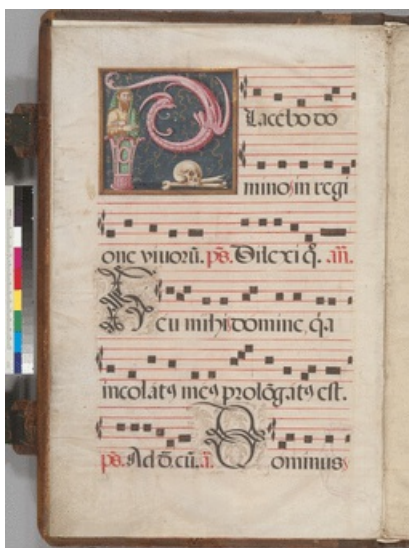 Placebo do
mino in regi
one vivorū. ps. Dilexi q̄. añ.
Heu mihi domine, q̄a
incolatꝰ meꝰ prolōgatꝰ est.
ps. Ad d̄. cū. a. Dominus